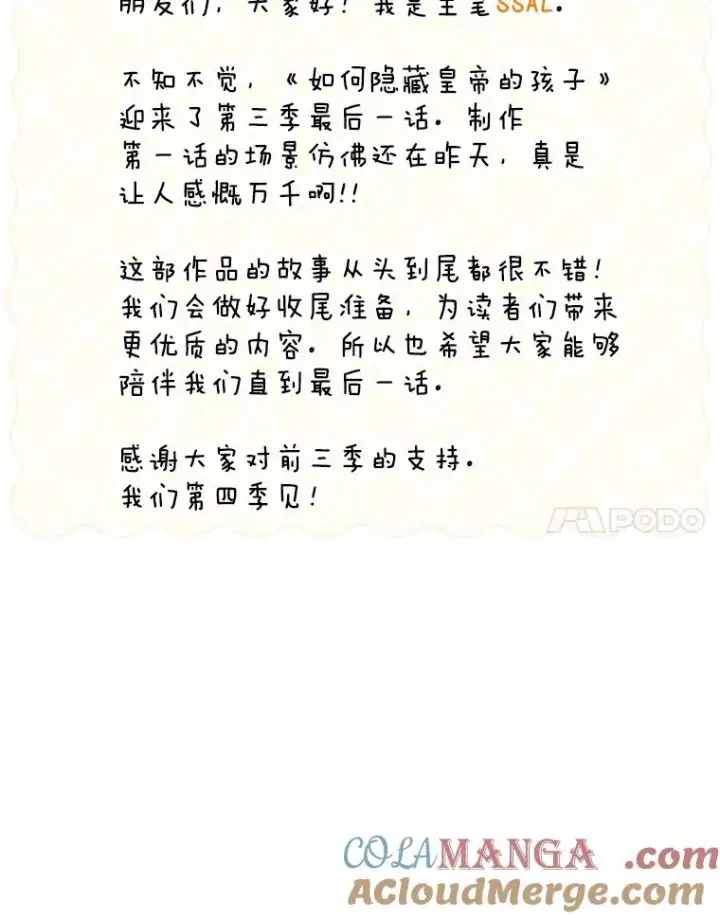 朋友们，大家好！我是主笔SSAL.
不知不觉，《如何隐藏皇帝的孩子》
迎来了第三季最后一话. 制作
第一话的场景仿佛还在昨天，真是
让人感慨万千啊!!
这部作品的故事从头到尾都很不错！
我们会做好收尾准备，为读者们带来
更优质的内容. 所以也希望大家能够
陪伴我们直到最后一话.
感谢大家对前三季的支持.
我们第四季见！
PODO
COLAMANGA.com
ACloudMerge.com